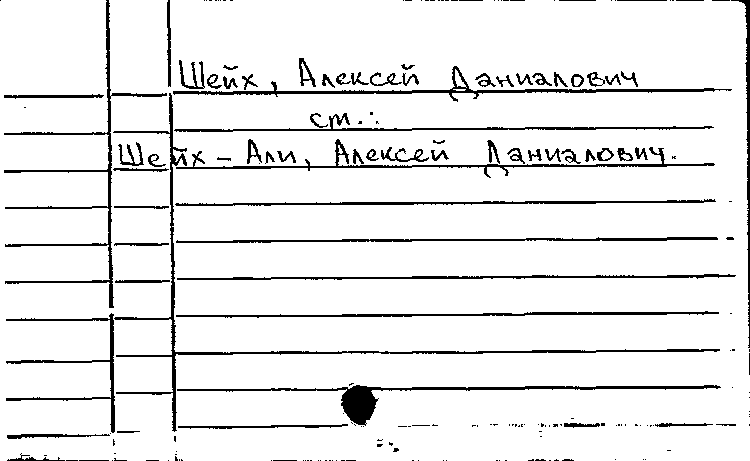 Шейх, Алексей Даниалович
ст.:
Шейх - Али, Алексей Даниалович.